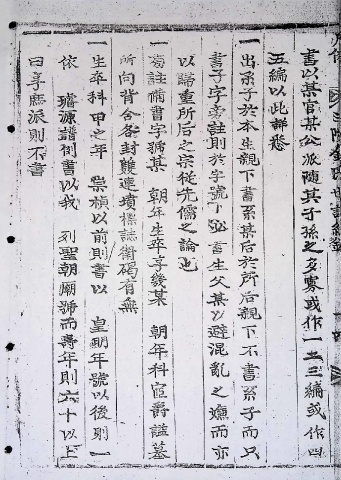 書以某官某公派随其子孫之多寡或作一二三編或作四
五編以此詳悉
一出系子於本生親下書系某后於所后親下不書系子而只
書子字旁註則於字號下必書生父某以避混亂之嫌而亦
以謹重所后之宗從先儒之論也
一旁註備書字號某 朝年生卒享幾某 朝年科宦壽諡墓
所向背合各封雙連墳標誌碑碣有無
一生卒科甲之年 崇禎以前則書以 皇朙年號以後則一
依 璿源譜例書以我 列聖朝廟號而壽年則六十以上
曰享應派則不書